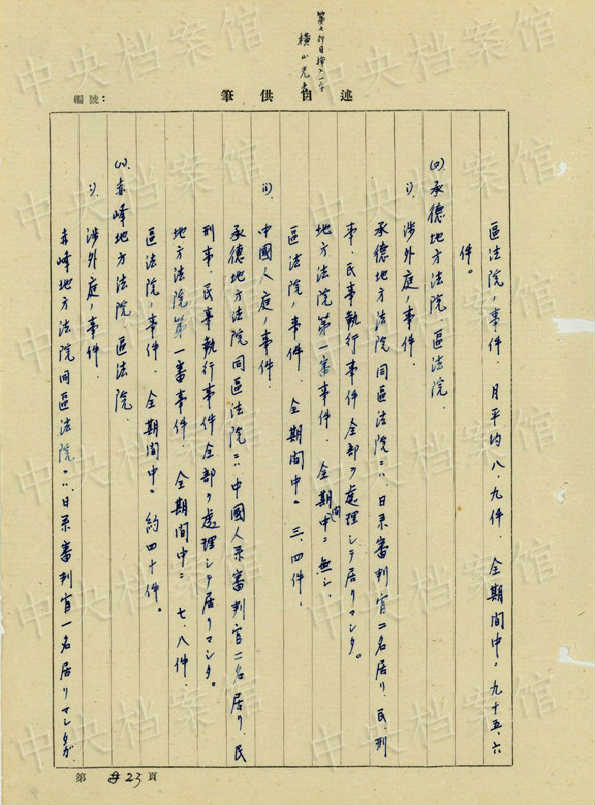 第七行目挿入一字
横山光彦
編號:
筆供自述
區法院ノ事件、月平均八、九件、全期間中ニ九十五、六
件。
(ロ)承德地方法院、區法院、
i)、涉外庭ノ事件、
承德地方法院同區法院ニハ、日系審判官二名居リ、民、刑
事、民事執行事件全部ヲ處理シテ居リマシタ。
地方法院第一審事件、全期間中ニ無シ、
區法院ノ事件、全期間中ニ三、四件、
ii)、中國人庭ノ事件、
承德地方法院同區法院ニハ、中國人系審判官二名居リ、民
刑事、民事執行事件全部ヲ處理シテ居リマシタ。
地方法院第一審事件、全期間中ニ七、八件、
區法院ノ事件、全期間中ニ約四十件。
(ハ)赤峰地方法院、區法院、
i)、涉外庭ノ事件、
赤峰地方法院同區法院ニハ、日系審判官一名居リマシタガ、
第 23 頁
中央档案馆
中央档案馆
中央档案馆
中央档案馆
中央档案馆
中央档案馆
中央档案馆
中央档案馆
中央档案馆
中央档案馆